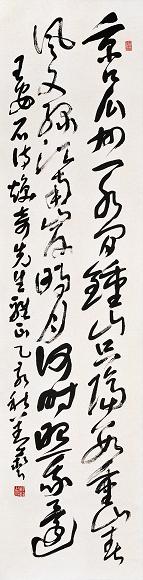 京口瓜州一水間鍾山只隔數重山春
風又綠江南岸明月何時照我還
王安石詩煥奇先生雅正乙亥秋